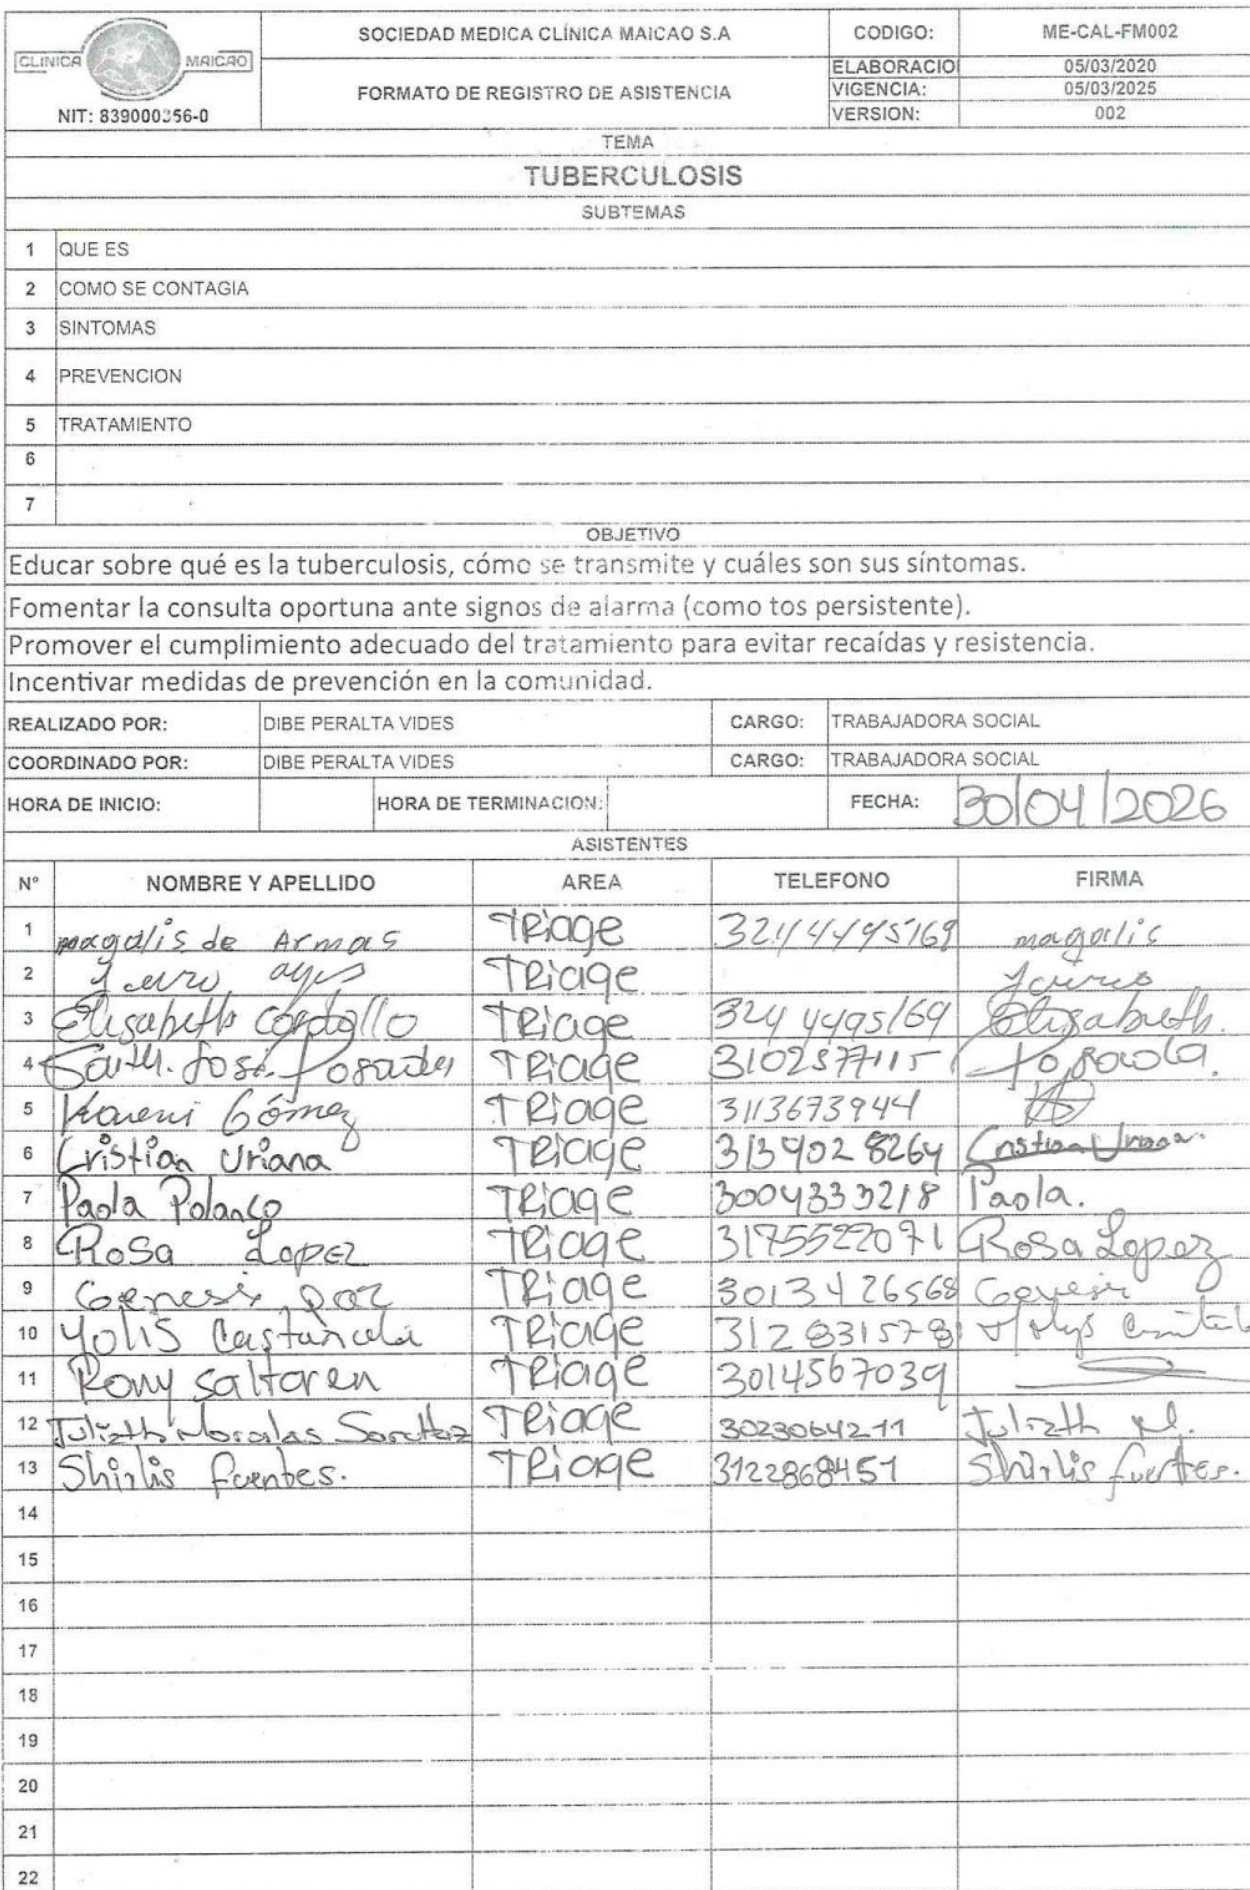 CLINICA MAICAO
NIT: 839000356-0
SOCIEDAD MEDICA CLÍNICA MAICAO S.A
FORMATO DE REGISTRO DE ASISTENCIA
CODIGO: ME-CAL-FM002
ELABORACIO 05/03/2020
VIGENCIA: 05/03/2025
VERSION: 002
TEMA
TUBERCULOSIS
SUBTEMAS
1 QUE ES
2 COMO SE CONTAGIA
3 SINTOMAS
4 PREVENCION
5 TRATAMIENTO
6
7
OBJETIVO
Educar sobre qué es la tuberculosis, cómo se transmite y cuáles son sus síntomas.
Fomentar la consulta oportuna ante signos de alarma (como tos persistente).
Promover el cumplimiento adecuado del tratamiento para evitar recaídas y resistencia.
Incentivar medidas de prevención en la comunidad.
REALIZADO POR: DIBE PERALTA VIDES CARGO: TRABAJADORA SOCIAL
COORDINADO POR: DIBE PERALTA VIDES CARGO: TRABAJADORA SOCIAL
HORA DE INICIO: HORA DE TERMINACION: FECHA: 30/04/2026
ASISTENTES
N° NOMBRE Y APELLIDO AREA TELEFONO FIRMA
1 magalis de Armas TRiage magalis
2 TRiage
3 Elisabeth TRiage 3244495169 Elisabeth.
4 José Posada TRiage 3102577115 Posada.
5 Kareni Gómez TRiage 3113673944
6 Cristian Uriana TRiage 3134028264 Cristian Uriana.
7 Paola Polanco TRiage 3004333218 Paola.
8 Rosa Lopez TRiage 3175522071 Rosa Lopez
9 Genesis paz TRiage 3013426568 Genesis
10 Yolis Castañeda TRiage 3128315781
11 Rony Saltaren TRiage 3014567039
12 Julieth Morales TRiage 3023064211 Julieth M.
13 Shirlis fuentes. TRiage 3122868451 Shirlis fuentes.
14
15
16
17
18
19
20
21
22